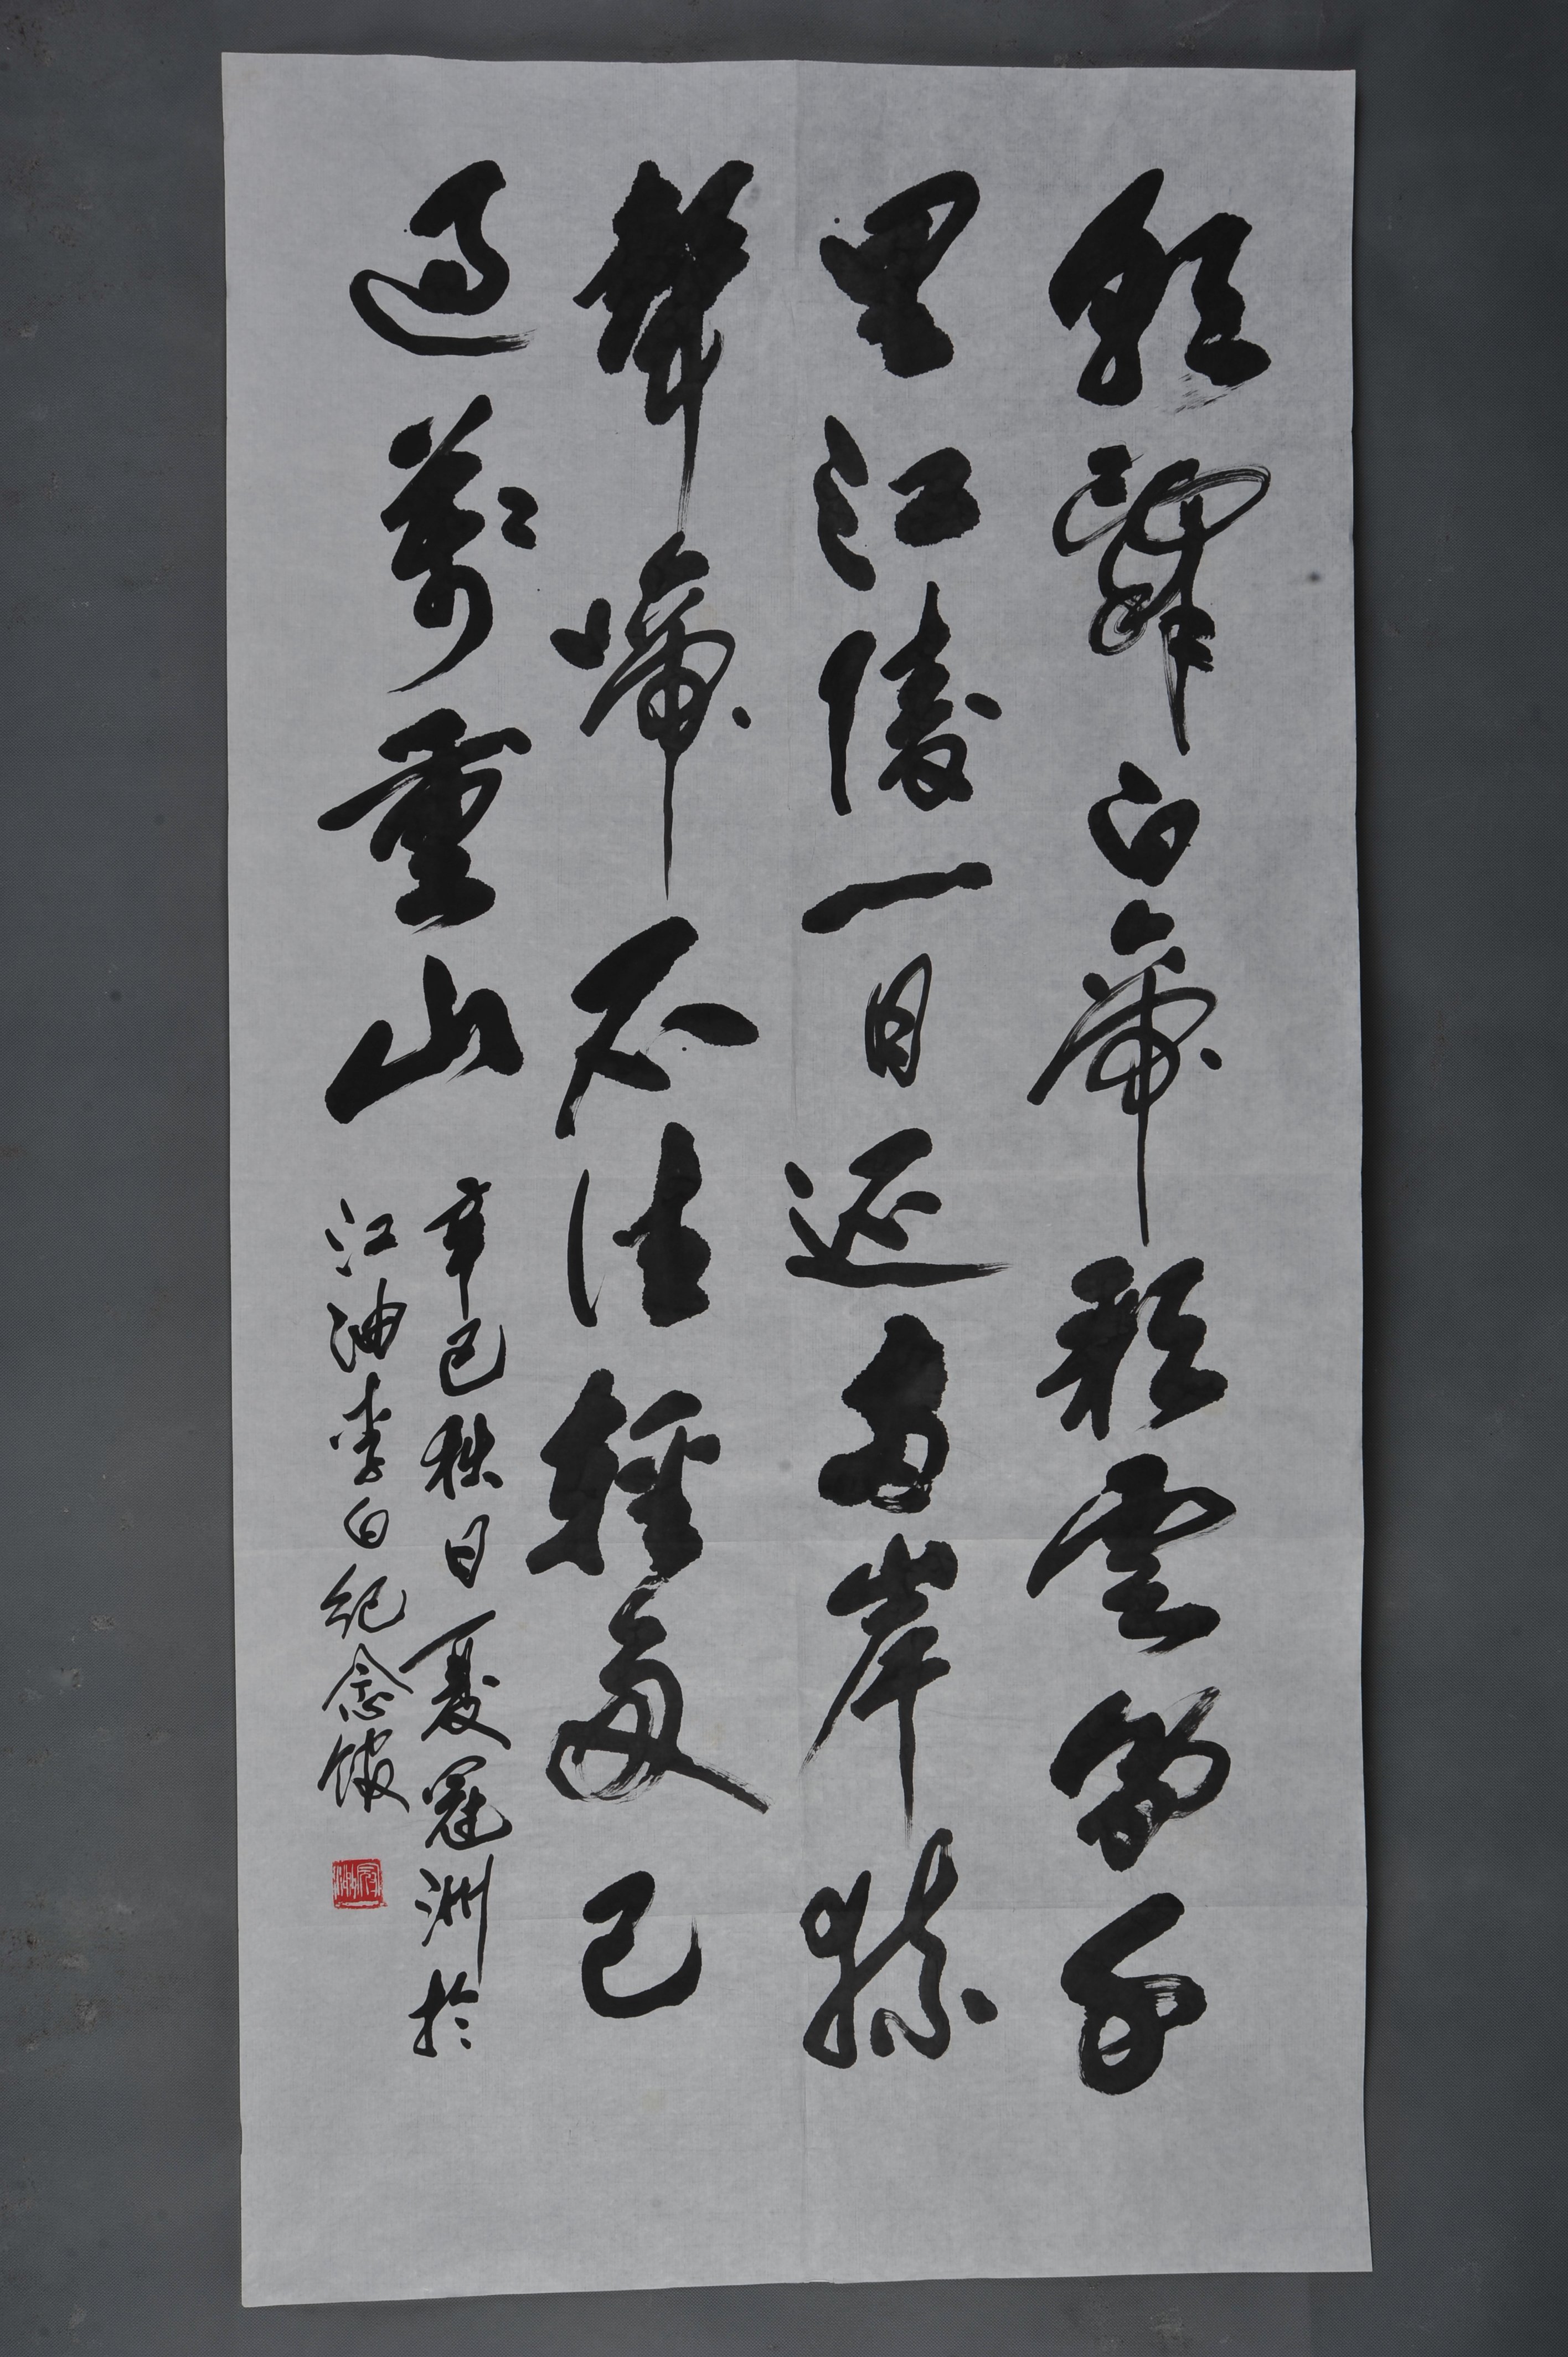 朝辭白帝彩雲間千
里江陵一日還兩岸猿
聲啼不住輕舟已
過萬重山
辛巳秋日夏冠洲於
江油李白紀念館
冠洲